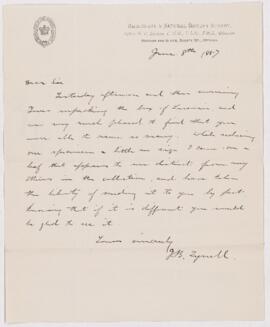 GEOLOGICAL & NATURAL HISTORY SURVEY,
June 8th 1887
Dear Sir
Yesterday afternoon and this evening
I was unpacking the box of and
am very much pleased to find that you
were able to name so many. While
one specimen a little an I came on a
leaf that appears to me distinct from any
others in the collection, and have taken
the liberty of sending it to you by post
knowing that if it is different you would
be glad to see it.
Yours sincerely
J.B. Tyrrell